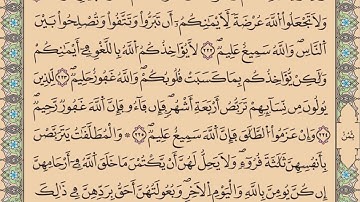 وَلَا تَجْعَلُوا۟ ٱللَّهَ عُرْضَةً لِّأَيْمَٰنِكُمْ أَن تَبَرُّوا۟ وَتَتَّقُوا۟ وَتُصْلِحُوا۟ بَيْنَ
ٱلنَّاسِ وَٱللَّهُ سَمِيعٌ عَلِيمٌ ٢٢٤ لَّا يُؤَاخِذُكُمُ ٱللَّهُ بِٱللَّغْوِ فِىٓ أَيْمَٰنِكُمْ
وَلَٰكِن يُؤَاخِذُكُم بِمَا كَسَبَتْ قُلُوبُكُمْ وَٱللَّهُ غَفُورٌ حَلِيمٌ ٢٢٥ لِّلَّذِينَ
يُؤْلُونَ مِن نِّسَآئِهِمْ تَرَبُّصُ أَرْبَعَةِ أَشْهُرٍ فَإِن فَآءُو فَإِنَّ ٱللَّهَ غَفُورٌ رَّحِيمٌ
٢٢٦ وَإِنْ عَزَمُوا۟ ٱلطَّلَٰقَ فَإِنَّ ٱللَّهَ سَمِيعٌ عَلِيمٌ ٢٢٧ وَٱلْمُطَلَّقَٰتُ يَتَرَبَّصْنَ
بِأَنفُسِهِنَّ ثَلَٰثَةَ قُرُوٓءٍ وَلَا يَحِلُّ لَهُنَّ أَن يَكْتُمْنَ مَا خَلَقَ ٱللَّهُ فِىٓ أَرْحَامِهِنَّ
إِن كُنَّ يُؤْمِنَّ بِٱللَّهِ وَٱلْيَوْمِ ٱلْءَاخِرِ وَبُعُولَتُهُنَّ أَحَقُّ بِرَدِّهِنَّ فِى ذَٰلِكَ